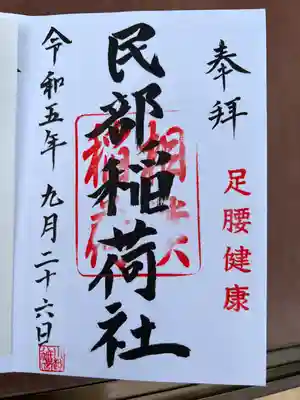 奉拝
足腰健康
民部稲荷社
令和五年九月二十六日